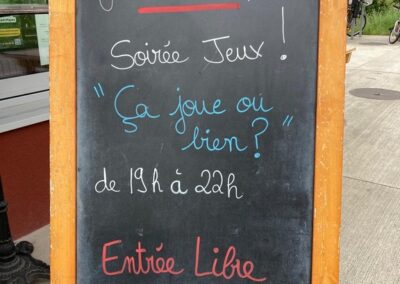 Soirée Jeux !
"Ça joue ou
bien ? "
de 19h à 22h
Entrée Libre